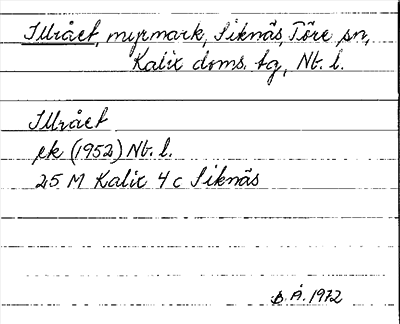 Illrået, myrmark, Siknäs, Töre sn,
Kalix doms. tg, Nt. l.
Illrået
ek (1952) Nt. l.
25 M Kalix 4 c Siknäs
B.Å. 1972